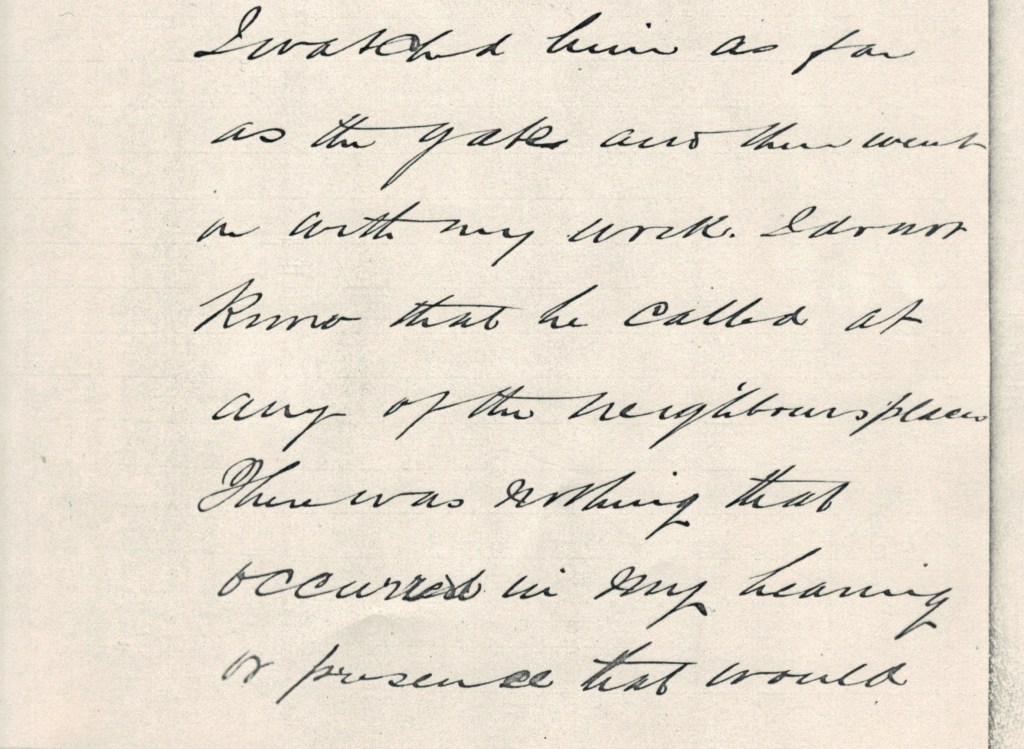 I watched him as far
as the gate and then went
on with my work. I do not
know that he called at
any of the neighbours' places
There was nothing that
occurred in my hearing
or presence that would